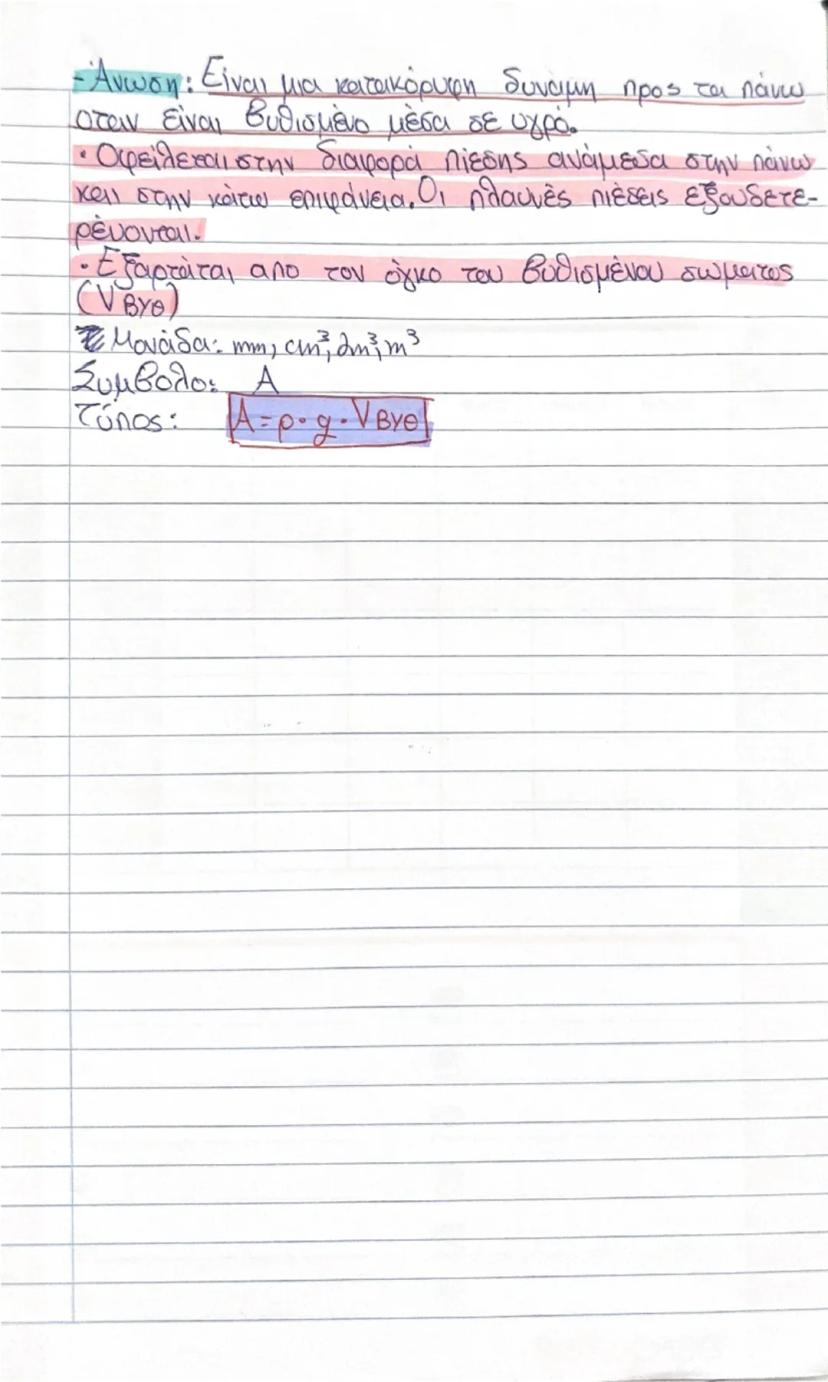 - Άνωση: Είναι μια κατακόρυφη δυνάμη προς τα πάνω
όταν είναι βυθισμένο μέσα σε υγρό.
• Οφείλεται στην διαφορά πίεσης ανάμεσα στην πάνω
και στην κάτω επιφάνεια. Οι πλαινές πιέσεις εξουδετε-
ρένονται.
• Εξαρτάται απο τον όγκο του βυθισμένου σώματος
(V ΒΥΘ)
Μονάδα: mm, cm³, dm³, m³
Σύμβολο: Α
Τύπος: Α = ρ · g · V ΒΥΘ